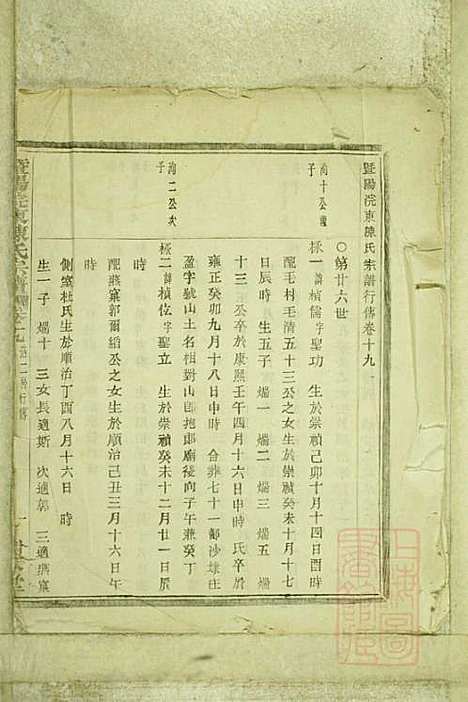 暨陽浣東陳氏宗譜行傳卷十九
○第廿六世
南十公 子
極一 諱楨儒 字聖功 生於崇禎己卯十月十四日酉時
配毛村毛清五十三公之女生於崇禎癸未十月十七
日辰時 生五子 煓一 煓二 煓三 煓五 煓
十三 公卒於康熙壬午四月十六日申時 氏卒於
雍正癸卯九月十八日申時 合葬七十一都沙埭庄
盈字號山土名相對山郎抱郎廟後向子午兼癸丁
南二公次子
極二 諱楨位 字聖立 生於崇禎癸未十二月廿一日辰
時
配燕窠郭爾縚公之女生於順治己丑三月十六日午
時
側室杜氏生於順治丁酉八月十六日 時
生一子 煓十 三女長適斯 次適郭 三適燕窠
暨陽浣東陳氏宗譜 卷十九 行傳 一